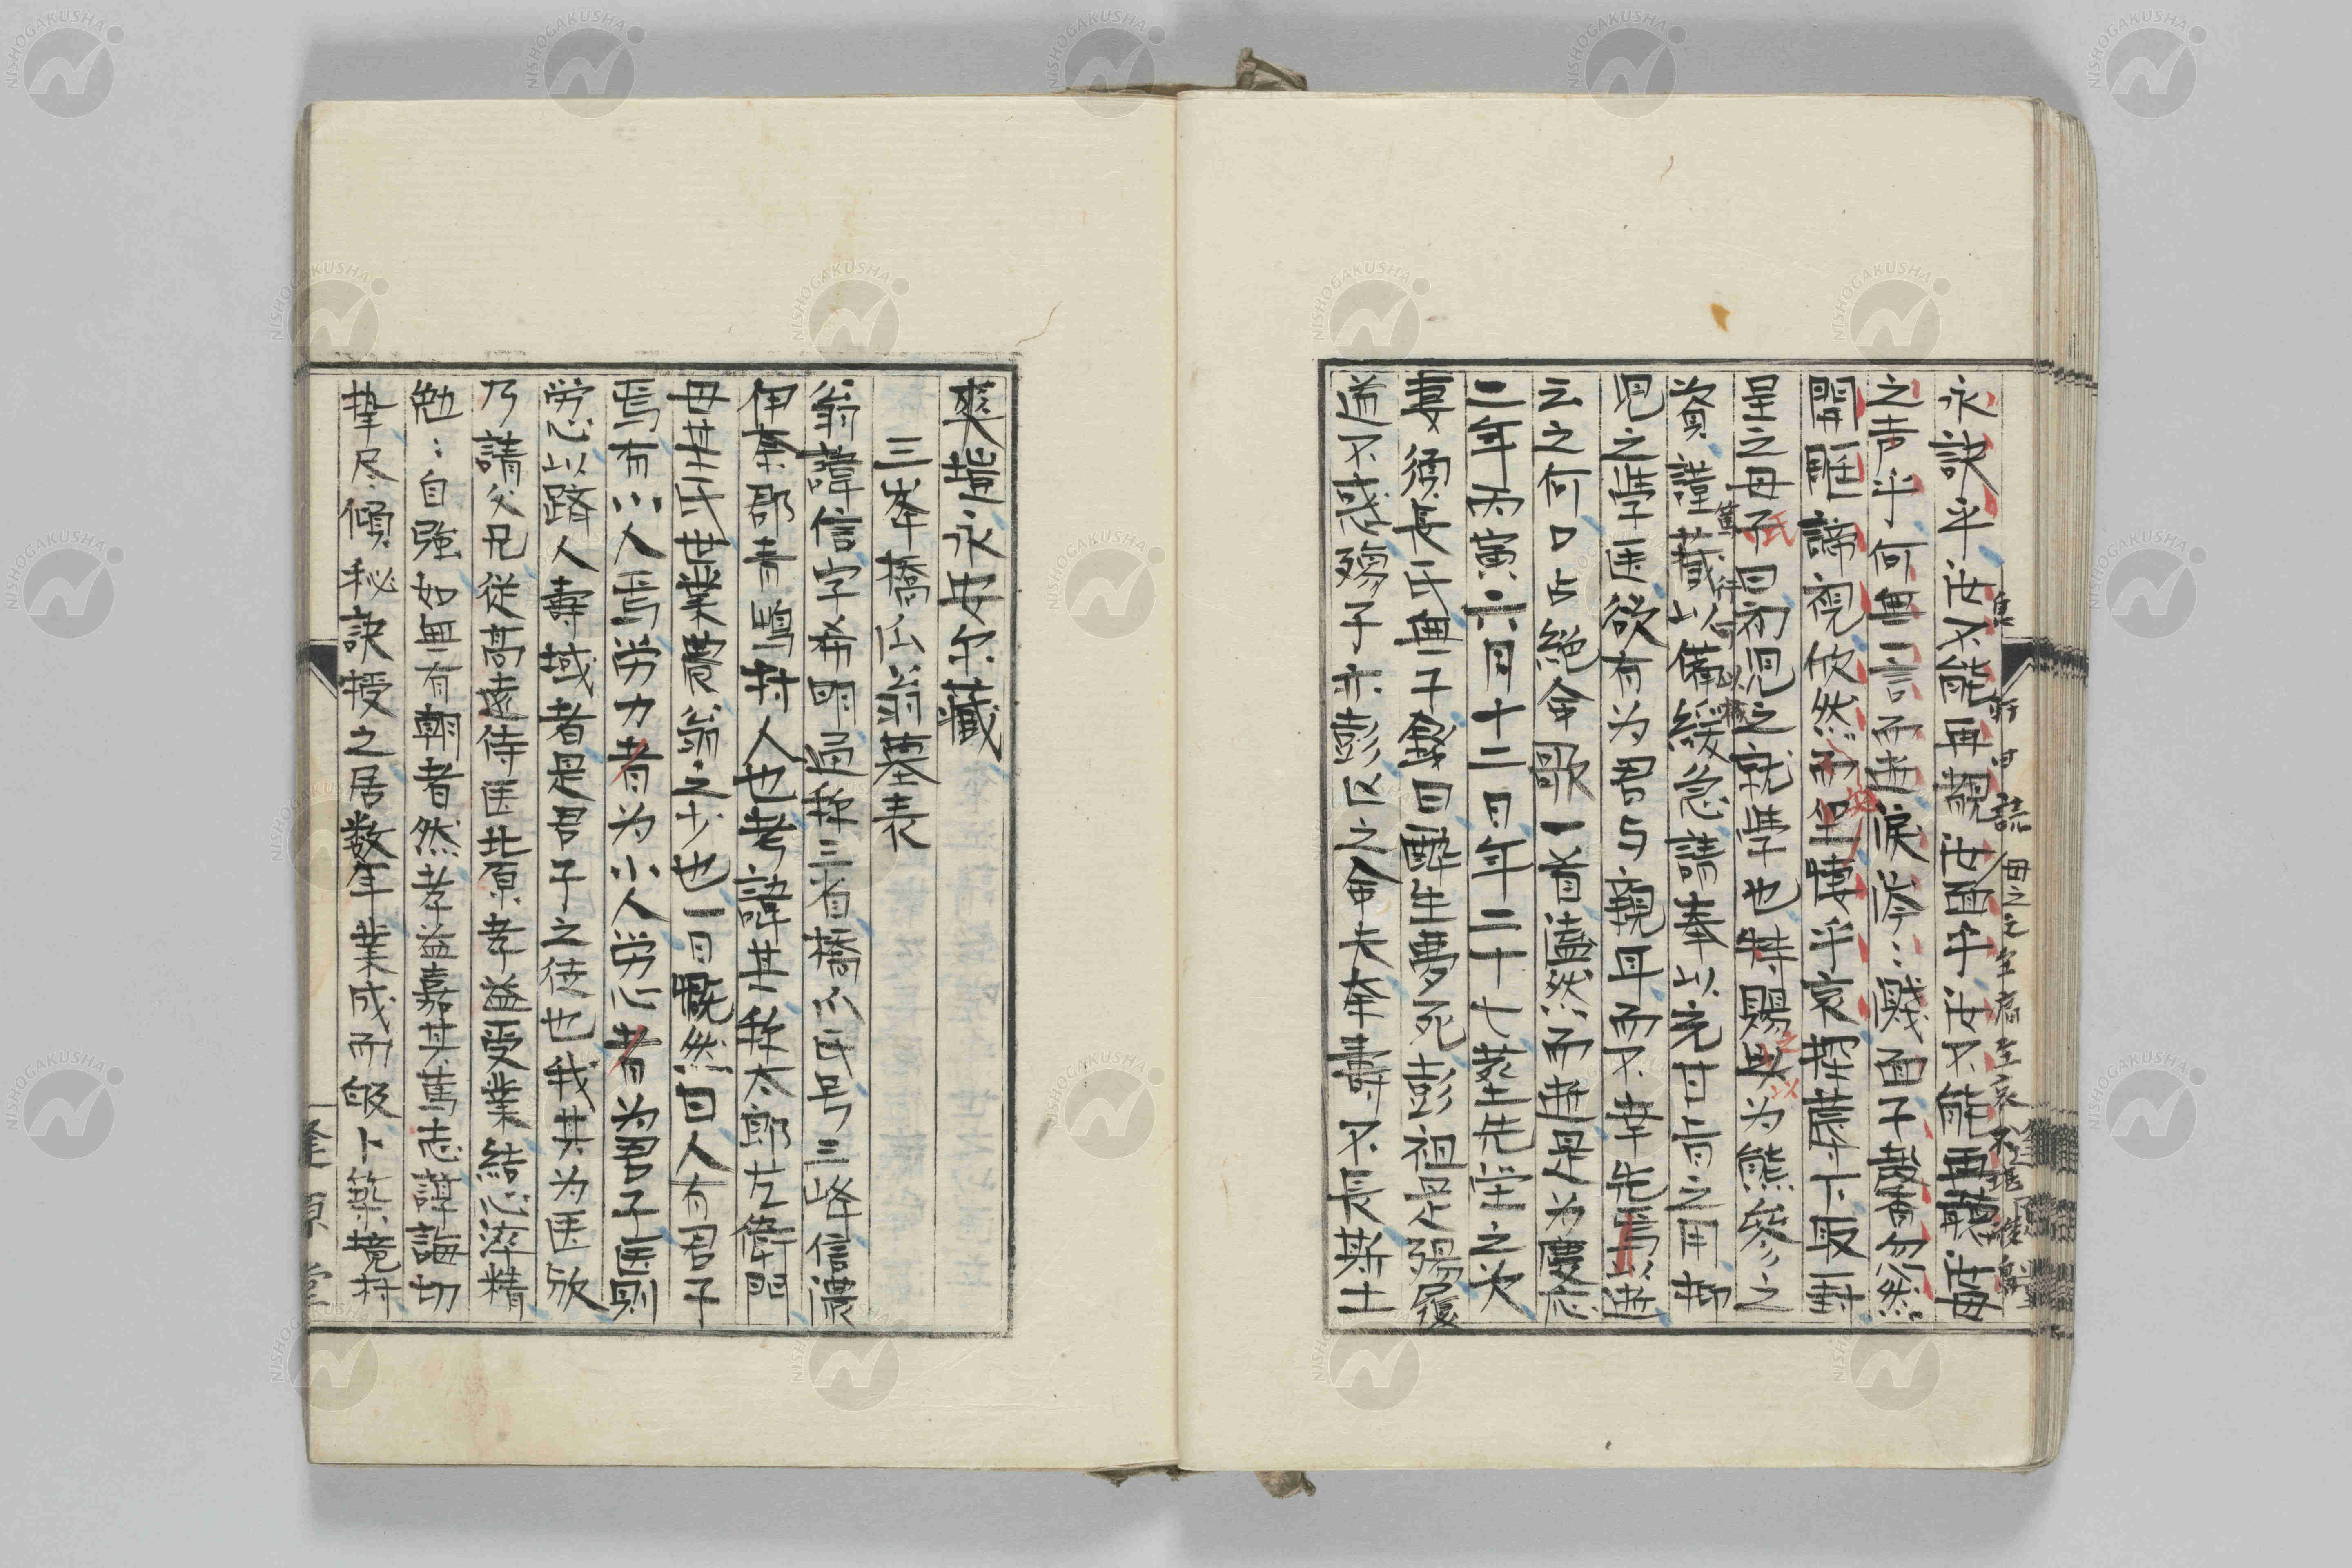 永訣乎汝不能再覯汝面乎汝不能再聽汝母
之声乎何無一言而逝涙滂〻濺面子〻忽然
開眶諦視攸然而坐悽乎哀探蓐下取一封
呈之母氏曰初児之就学也特賜与為熊参之
資謹藏以備緩急請奉以充甘旨之用抑
児之学医欲有为君与親耳而不幸先焉逝
云之何口占絶命歌一首溘然而逝是为慶応
二年丙寅六月十二日年二十七葬先塋之次
妻須長氏無子銘曰酔生夢死彭祖是殤履
道不惑殤子亦彭区之命夫奔寿不長斯土
爽塏永安尔藏
三峯橋爪翁墓表
翁諱信字希明通称三省橋爪氏号三峰信濃
伊奈郡青島村人也考諱某称太郎左衛門
母某氏世業農翁之少也一日慨然曰人有君子
焉有小人焉労力者为小人労心者为君子医則
労心以躋人寿域者是君子之徒也我其为医欤
乃請父兄従高遠侍医北原孝益受業結心淬精
勉〻自強如無有朝者然孝益嘉其篤志諄誨切
摯尽傾秘訣授之居数年業成而皈卜築境村
隆原堂
NISHOGAKUSHA